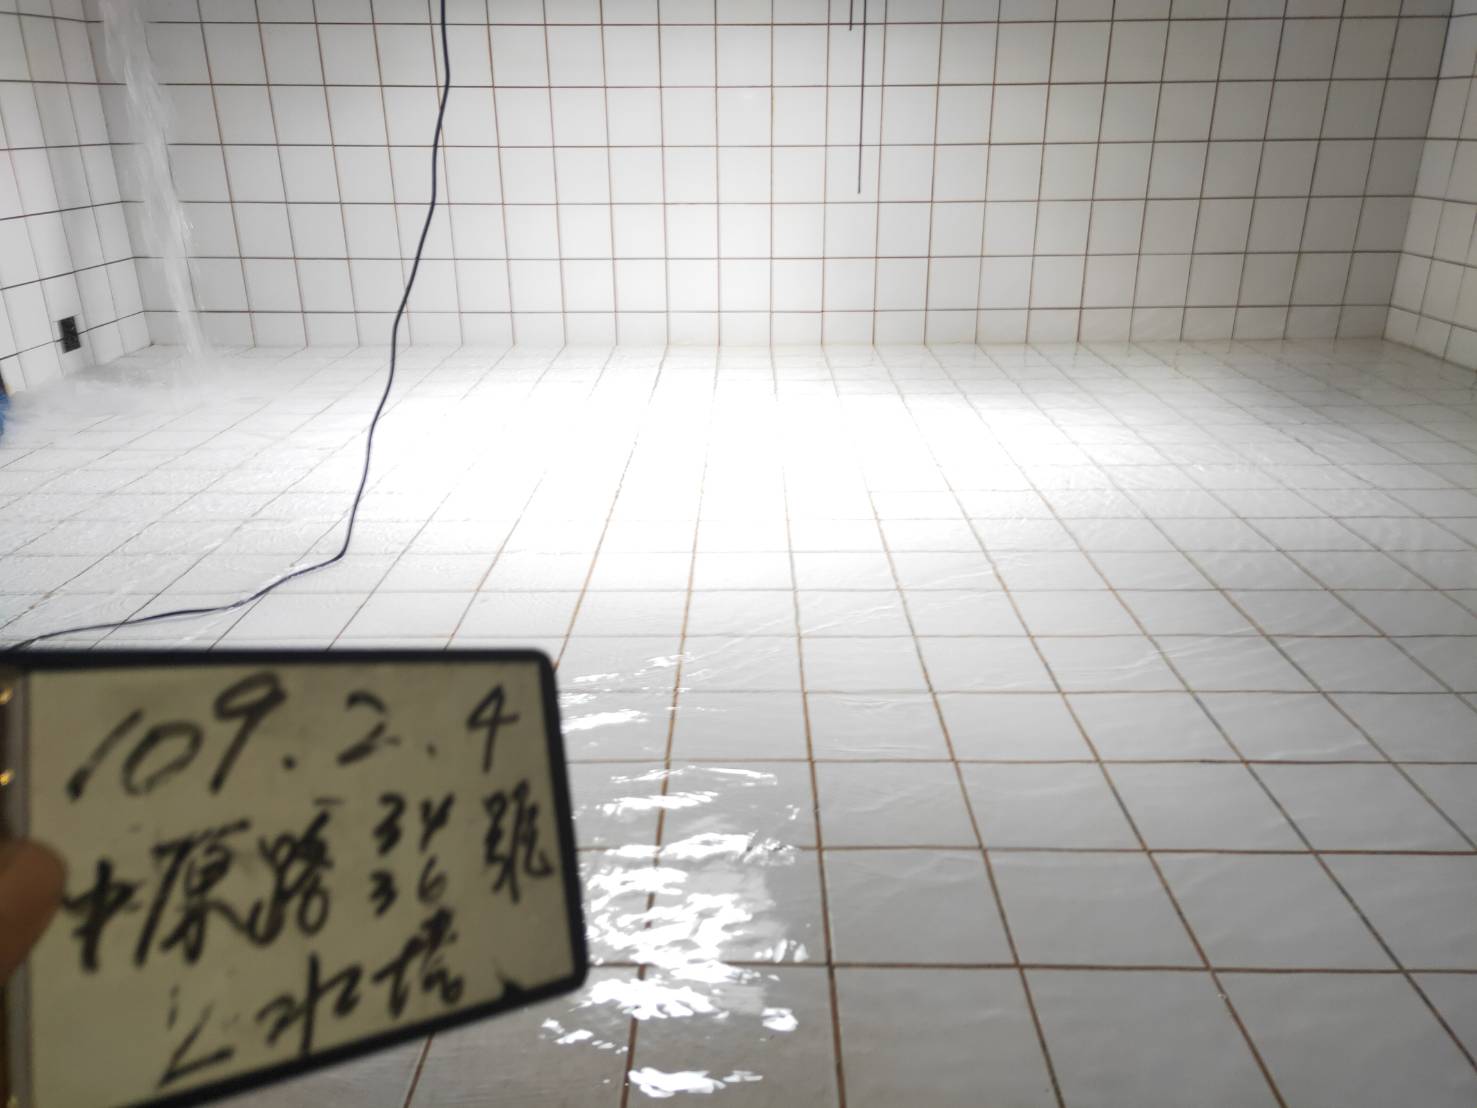 109.2.4
中原路34號
36
水塔